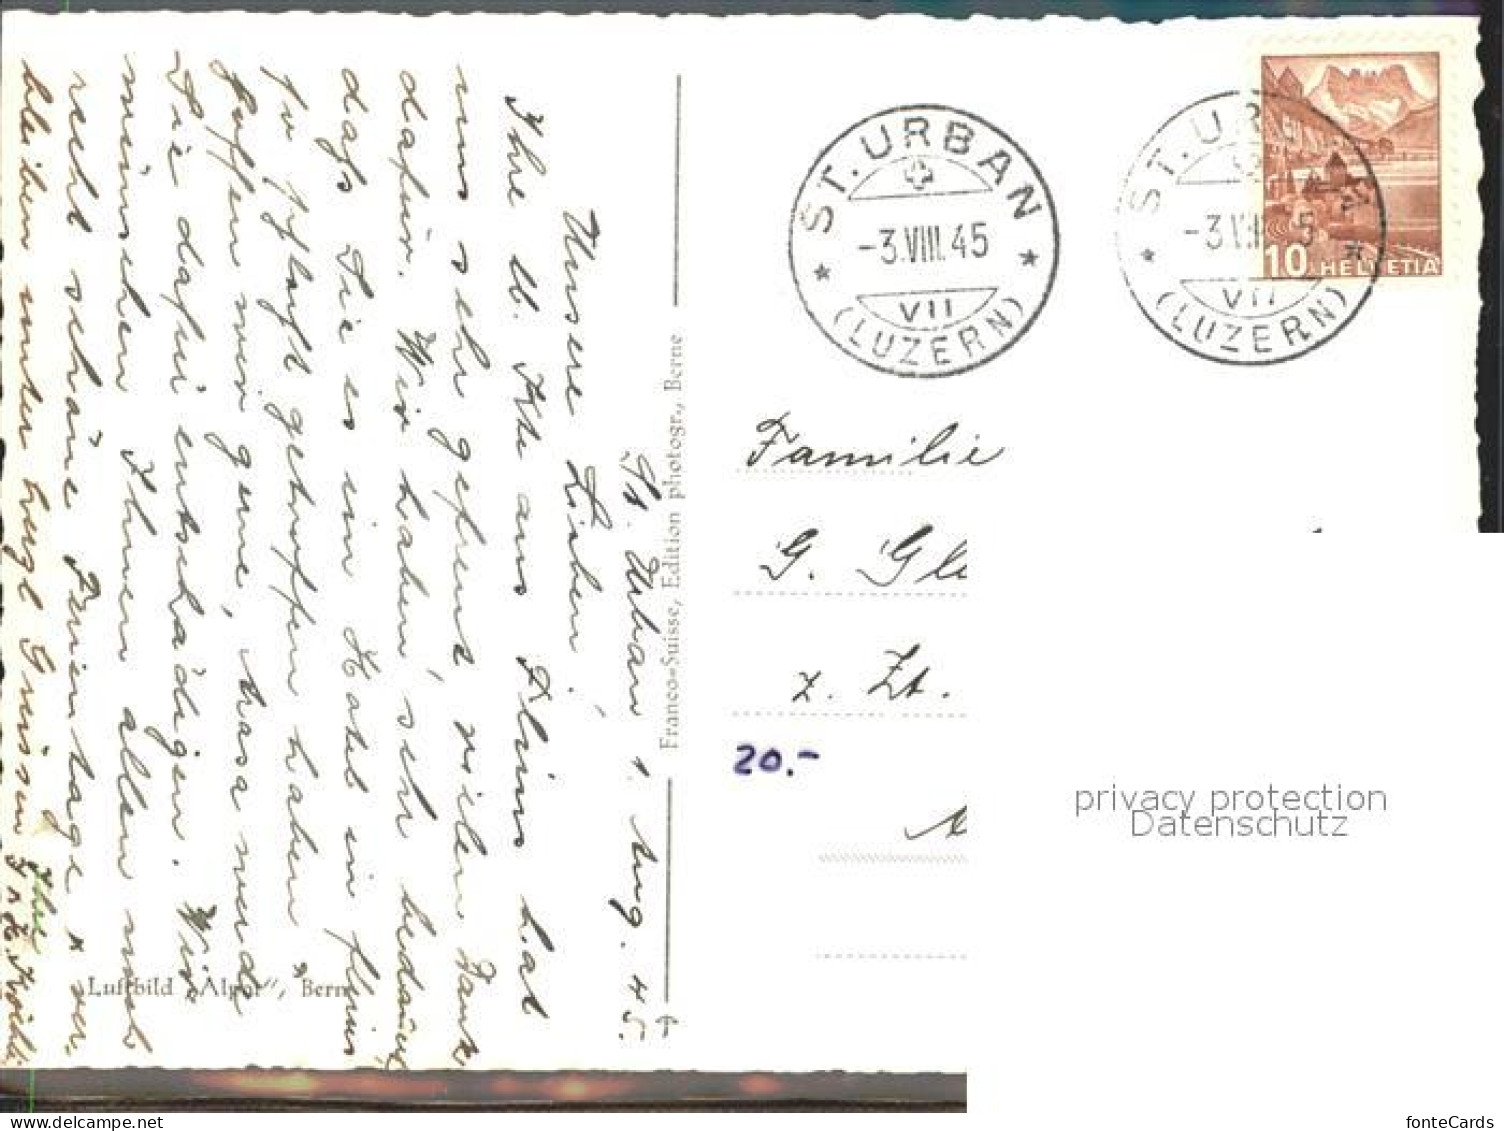 St. Urban 1. Aug. 45.
Unsere Lieben!
Ihre lb. Kte aus Flims hat
uns sehr gefreut, vielen Dank
dafür. Wir haben, sehr bedauert,
dass Sie es im Hotel in Flims
so getroffen haben
hoffen wir gerne, Arosa werde
Sie dafür entschädigen. Wir
wünschen Ihnen allen noch
recht schöne Ferientage &amp; ver-
bleiben unter herzl. Grüssen Ihre
Franco=Suisse, Edition photogr., Berne
Luftbild „Alpar", Bern
ST. URBAN
-3.VIII.45
VII
(LUZERN)
ST. URBAN
-3.VIII.45
VII
(LUZERN)
10 HELVETIA
Familie
G. Gl
z. Zt.
20.-
A
privacy protection
Datenschutz
fonteCards